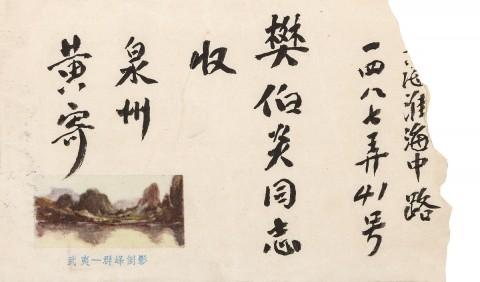 淮海中路
一四八七弄41号
樊伯炎同志
收
泉州
黄寄
武夷—群峰倒影